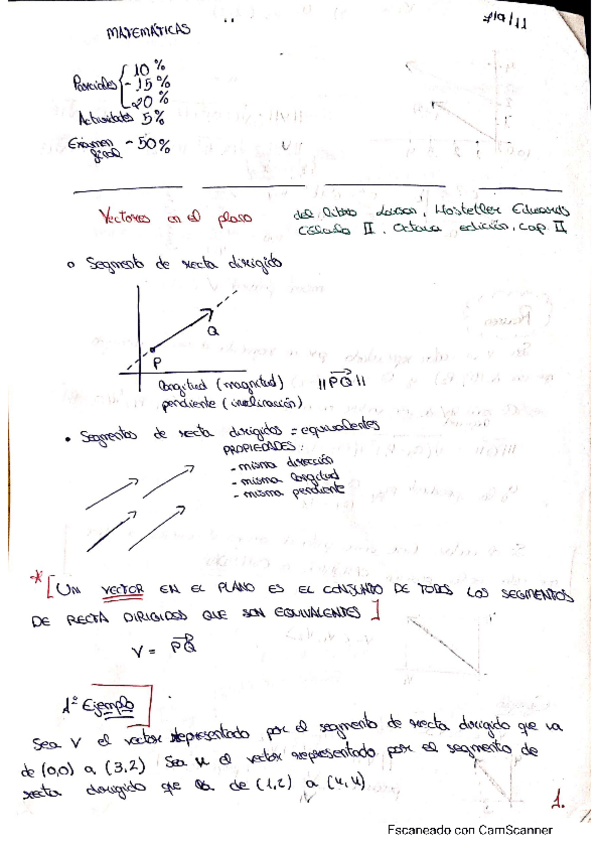 MATEMÁTICAS
Parciales { 10 %
- 15 %
- 20 %
Actividades 5 %
Examen final - 50 %
Vectores en el plano
del libro Larson, Hostetler Edwards
Cálculo II. Octava edición, cap. II
Segmento de recta dirigido
Q
P
longitud (magnitud) ||PQ||
pendiente (inclinación)
Segmentos de recta dirigidos = equivalentes
PROPIEDADES:
- misma dirección
- misma longitud
- misma pendiente
* [UN VECTOR EN EL PLANO ES EL CONJUNTO DE TODOS LOS SEGMENTOS
DE RECTA DIRIGIDOS QUE SON EQUIVALENTES]
V = PQ
1º Ejemplo
Sea V el vector representado por el segmento de recta dirigido que va
de (0,0) a (3,2) Sea u el vector representado por el segmento de
recta dirigido que va de (1,2) a (4,4)
1.
Escaneado con CamScanner